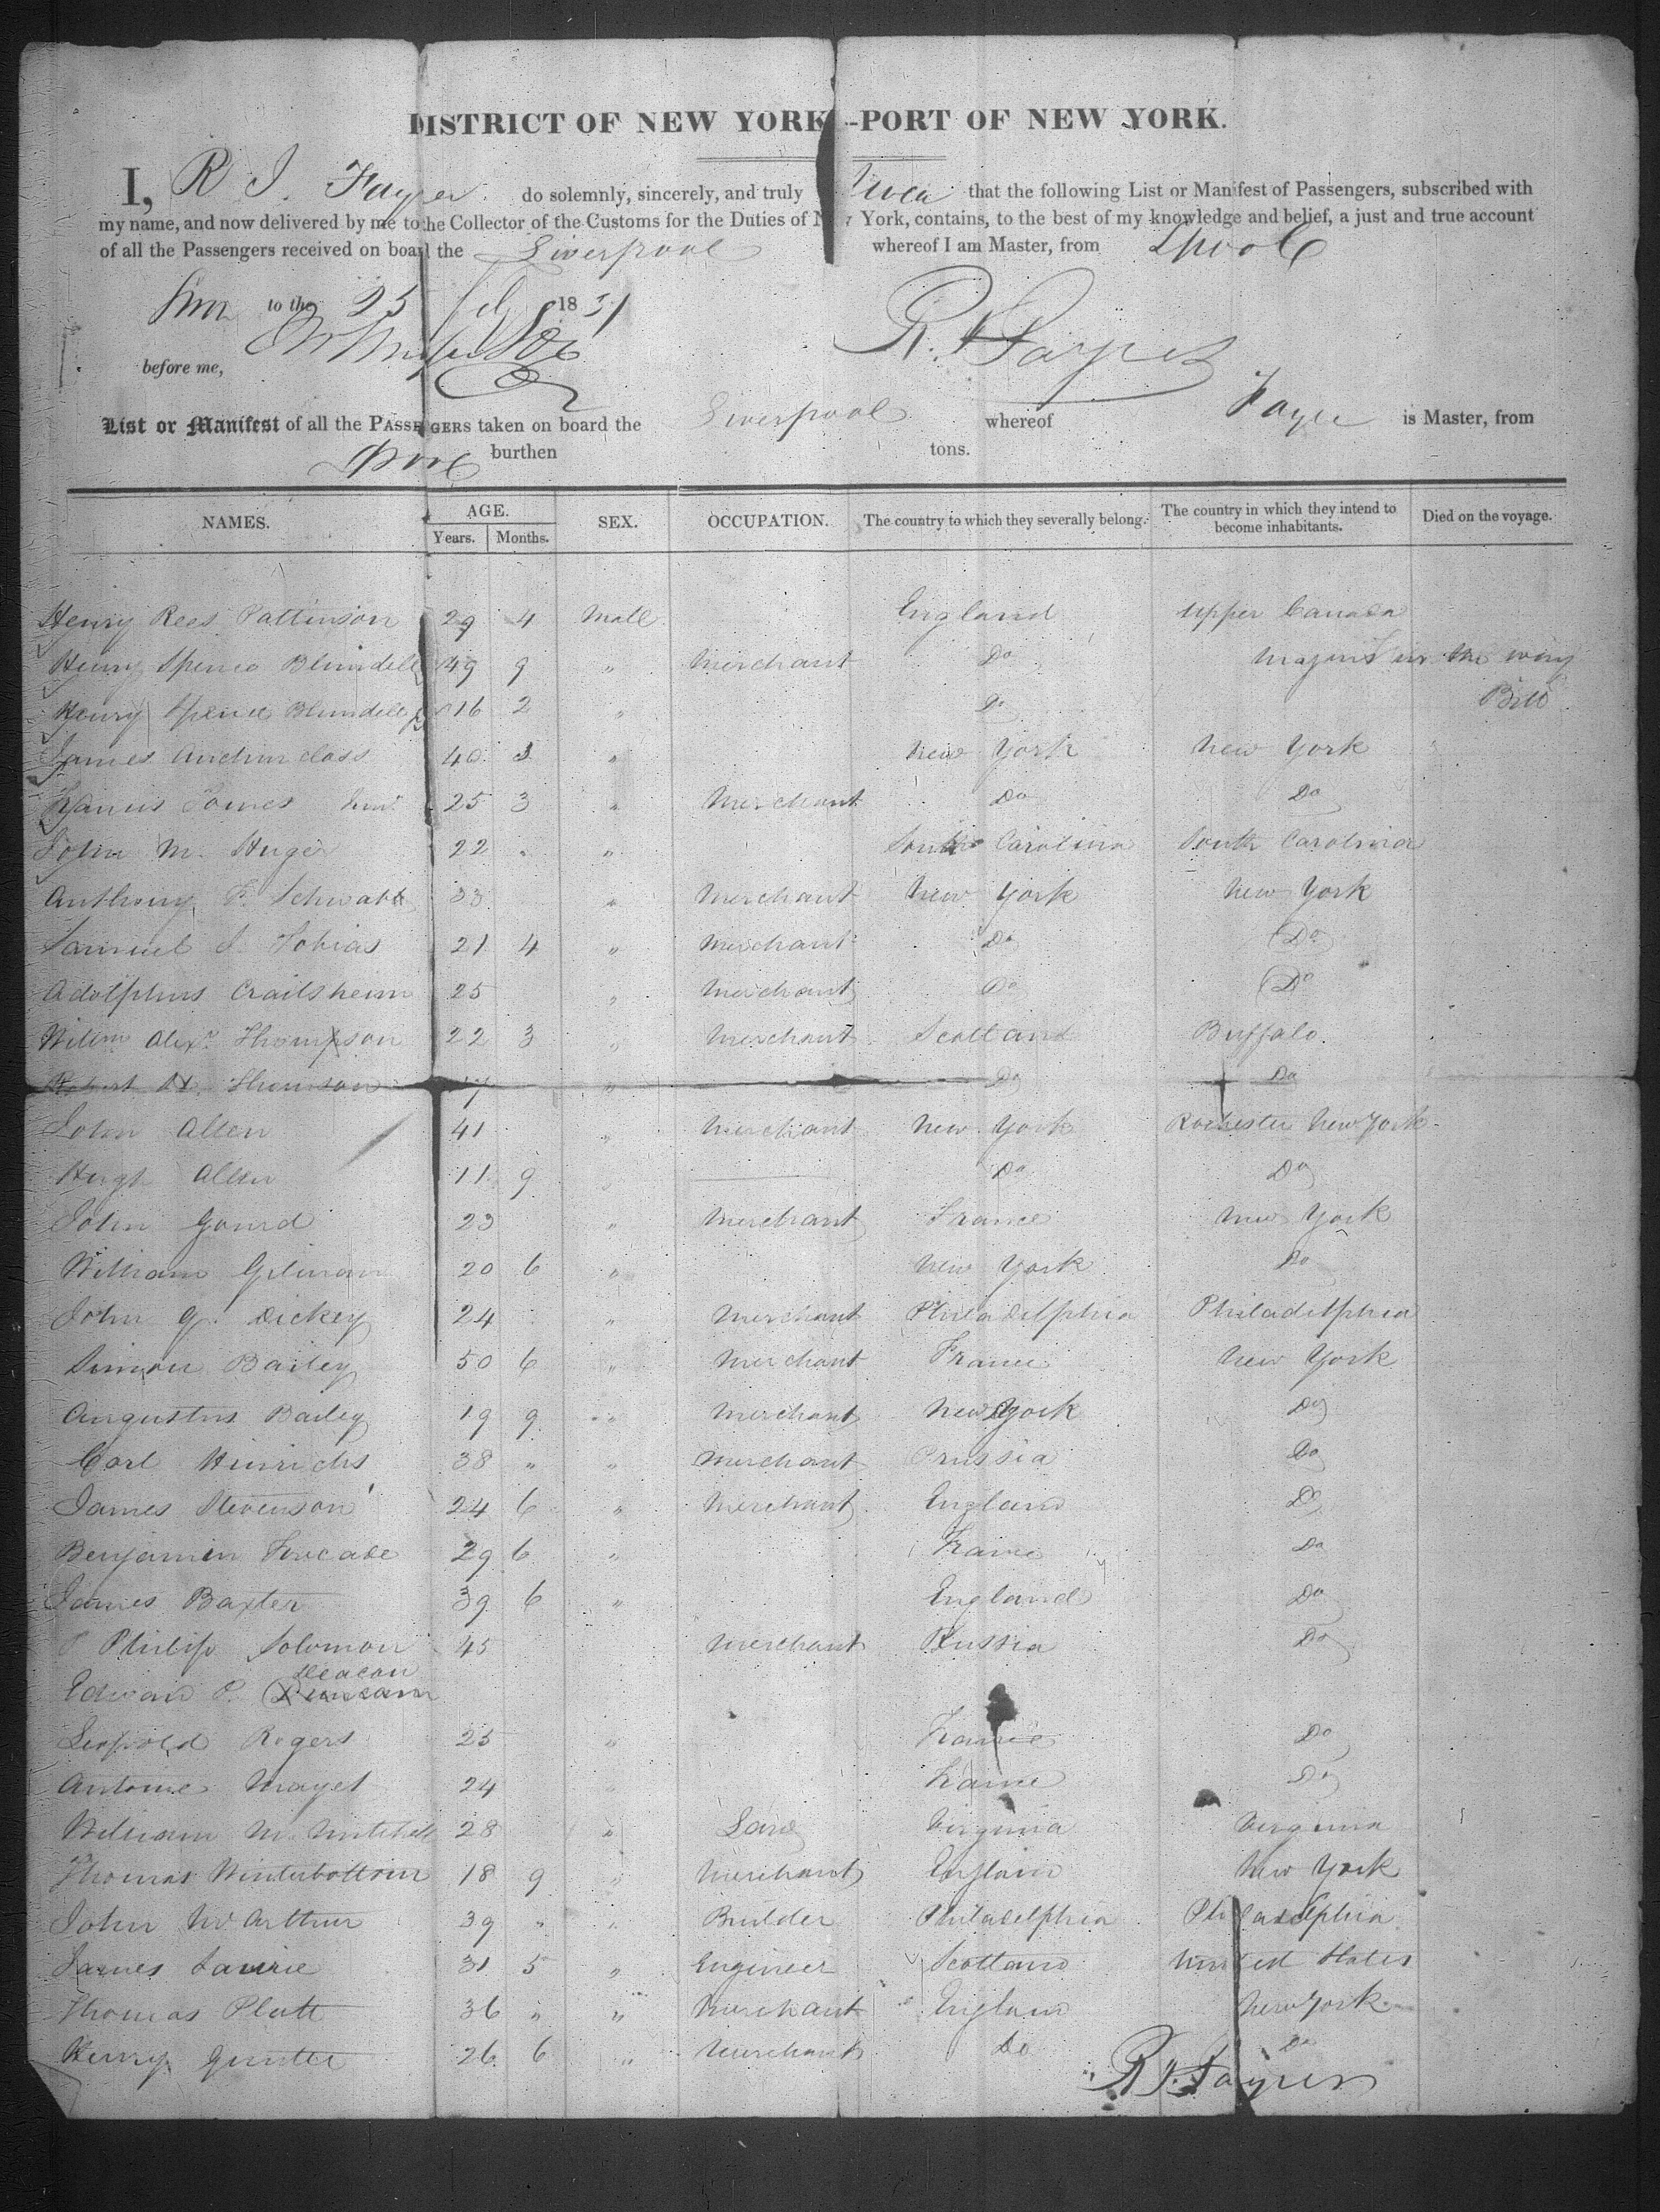 DISTRICT OF NEW YORK--PORT OF NEW YORK.
I, R J. Fayrer do solemnly, sincerely, and truly that the following List or Manifest of Passengers, subscribed with
my name, and now delivered by me to the Collector of the Customs for the Duties of New York, contains, to the best of my knowledge and belief, a just and true account
of all the Passengers received on board the Liverpool whereof I am Master, from Lpool
to the 25 18
before me, R. J Fayrer
List or Manifest of all the PASSENGERS taken on board the Liverpool whereof Fayrer is Master, from
Lpool burthen tons.
NAMES. AGE. Years. Months. SEX. OCCUPATION. The country to which they severally belong. The country in which they intend to become inhabitants. Died on the voyage.
Henry Rees Pattinson 29 4 Male England Upper Canada
Henry Spence Blundell 49 9 " Merchant Do in the way
Henry Spence Blundell 16 2 " Do Bill
James class 40 " New York New York
Francis Tomes Junr 25 3 " Merchant Do Do
John M. Huger 22 " " South Carolina South Carolina
Anthony F. Schwab 33 " Merchant New York New York
Samuel I. Tobias 21 4 " Merchant Do Do
Adolphus Crailsheim 25 " Merchant Do Do
Willm Alexr Thomson 22 3 " Merchant Scotland Buffalo
Robert Thomson " Do Do
John Allen 41 " Merchant New York Rochester New York
Hugh Allen 11 9 " Do Do
John Gourd 23 " Merchant France New York
William Gilman 20 6 " New York Do
John G. Dickey 24 " Merchant Philadelphia Philadelphia
Simon Bailey 50 6 " Merchant France New York
Augustus Bailey 19 9 " Merchant New York Do
Carl Hinrichs 38 " " Merchant Prussia Do
James Stevenson 24 6 " Merchant England Do
Benjamin 29 6 " France Do
James Baxter 39 6 " England Do
Philip Solomon 45 Merchant Russia Do
Deacon
Edward P. Duncan
Leopold Rogers 25 " France Do
Antoine Mayet 24 France Do
William M. Mitchell 28 " Virginia Virginia
Thomas Winterbottom 18 9 " Merchant England New York
John McArthur 39 " " Builder Philadelphia Philadelphia
James Laurie 31 5 " Engineer Scotland United States
Thomas Platt 36 " " Merchant England New York
Henry Gunter 26 6 " Merchant Do Do
R J. Fayrer